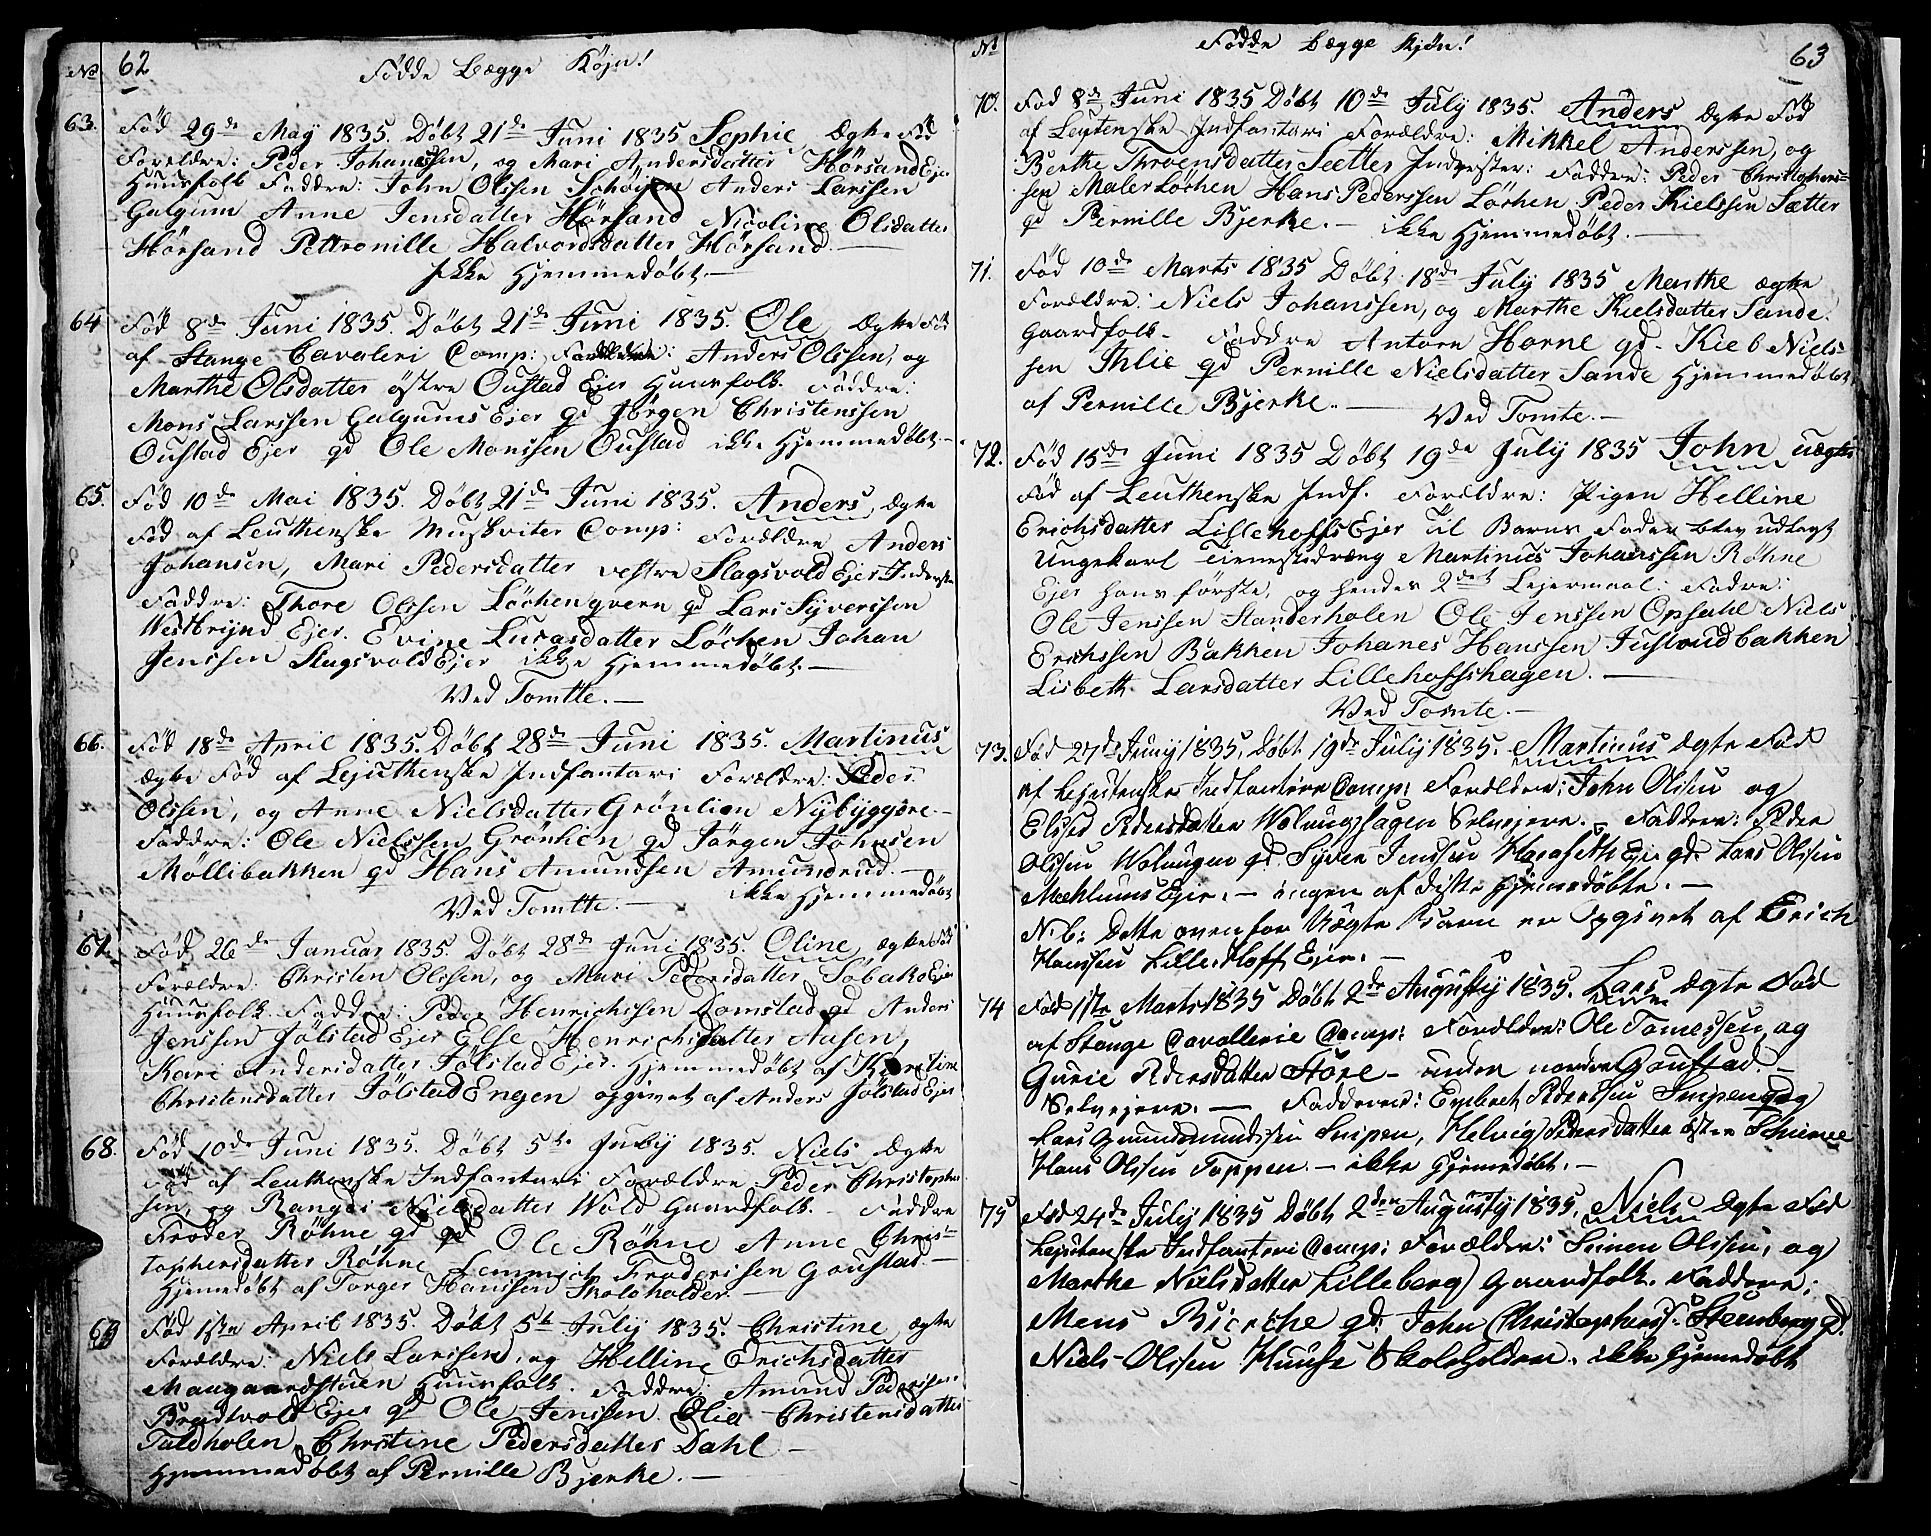 No 62 Födde Bægge Köjn!
63. Föd 29de May 1835. Döbt 21de Juni 1835 Sophie, Ægte Föd
Foreldre: Peder Johanssen, og Mari Andersdatter Hörsand Ejer
Huusfolk Faddre: John Olssen Schöijen Anders Larssen
Galgum Anne Jensdatter Hörsand Nicoline Olsdatter
Hörsand Pettronille Halvordsdatter Hörsand. —
Ikke Hjemmedöbt —
64 Föd 8de Juni 1835. Döbt 21de Juni 1835. Ole, Ægte Föd
af Stange Cavaleri Comp: Forældre: Anders Olssen, og
Marthe Olsdatter östre Oustad Ejer Huusfolk. Faddre:
Mons Larssen Galgums Ejer gd Jörgen Christenssen
Oustad Ejer gd Ole Monssen Oustad ikke Hjemmedöbt. —
65. Föd 10de Mai 1835. Döbt 21de Juni 1835. Anders, Ægte
Föd af Leuthenske Muskviter Comp: Forældre Anders
Johansen, Mari Pedersdatter vestre Slagsvold Ejer Inderste
Faddre: Thore Olssen Löchengvern gd Lars Syverssen
Westbrynd Ejer. Evine Lucasdatter Löchen Johan
Jenssen Slagsvold Ejer ikke Hjemmedöbt. —
Ved Tomtte. —
66. Föd 18de April 1835. Döbt 28de Juni 1835. Martinus
Ægte Föd af Lejuthenske Indfantari Forældre: Peder
Olssen, og Anne Nielsdatter Grönlien Nybyggere —
Faddre: Ole Nielssen Grönlien gd Jörgen Johnsen
Möllibakken gd Hans Amundsen Amundrud. —
Ved Tomtte. — ikke Hjemmedöbt
67. Föd 26de Januar 1835. Döbt 28de Juni 1835. Oline, ægte Föd
Forældre: Christen Olssen, og Mari Pedersdatter Söbakk Ejer
Huusfolk. Faddre: Peder Henrichssen Domstad gd Anders
Jenssen Jölstad Ejer Else Henrichsdatter Aasen,
Kari Andersdatter Jölstad Ejer. Hjemmedöbt af Kirstine
Christensdatter Jölstad Engen opgivet af Anders Jölstad Ejer
68. Föd 10de Juni 1835. Döbt 5te July 1835. Niels Ægte
Föd af Leuthenske Indfantari Forældre Peder Christopher
sen, og Rangdi Nielsdatter Wold Gaardfolk. — Faddre
Froder Röhne gd Ole Röhne Anne Chris=
tophersdatter Röhne Lemmich Froderssen Goustad. —
Hjemmedöbt af Torger Hanssen Skoleholder —
69 Föd 1ste April 1835. Döbt 5te July 1835. Christine, ægte
Forældre: Niels Larssen, og Helline Erichsdatter
Maugaardstuen Huusfolk. Faddre: Amund Pederssen
Bredtvold Ejer gd Ole Jenssen Olia Christensdatter
Taldholen, Christine Pedersdatter Dahl —
Hjemmedöbt af Pernille Bjerke. —
No Fødde Bægge Kjön! 63
70. Föd 8de Juni 1835 Döbt 10de July 1835. Anders Ægte Föd
af Leutenske Indfantari Forældre: Mikkel Anderssen, og
Berthe Throensdatter Sætter Inderster: Faddre: Peder Christophers=
sen Maler Löchen Hans Pederssen Löchen Peder Kielssen Sætter
gd Pernille Bjerke. — ikke Hjemmedöbt. —
71. Föd 10de Marts 1835 Döbt 18de July 1835 Marthe ægte
Forældre: Niels Johanssen, og Marthe Kielsdatter Sande.
Gaardfolk — Faddre Antore Horne gd. Kield Niels=
sen Ihlie gd Pernille Nielsdatter Sande Hjemmedöbt
af Pernille Bjerke. — Ved Tomte. —
72. Föd 15de Juni 1835 Döbt 19de July 1835 John uægte
Föd af Leuthenske Indf. Forældre: Pigen Helline
Erichsdatter Lillehoffs Ejer Til Barns Fader blev udlagt
Ungekarl Tienestedræng Martinus Johanssen Röhne
Ejer Hans förste, og hendes 2det Leiermaal. Fadre:
Ole Jenssen Standerholen Ole Jenssen Opsahl Niels
Erichssen Bakken Johanes Hanssen Justnudbakken
Lisbeth Larsdatter Lillehoffshagen. —
Ved Tomte. —
73. Föd 27de Juny 1835. Döbt 19de July 1835. Martinus Ægte Föd
af Lejutenske Indfanterie Comp: Forældre: John Olssen og
Elsed Pedersdatter Wolunghagen Selvejere. Faddere: Peder
Olssen Wolungen gd. Syver Jenssen Haraseth Ejer gd. Lars Olssen
Mæhlums Ejer. — ingen af disse Hjemedöbte. —
N.b: Dette ovenfor Uægte Barn er Opgivet af Erich
Hanssen Lille-Hoff Ejer. —
74 Föd 1ste Marts 1835 Döbt 2de Augusty 1835. Lars Ægte Föd
af Stange Cavallerie Comp: Forældre: Ole Tomessen, og
Gurie Pedersdatter Flöre — under nordre Goustad. —
Selvejere. — Faddere: Engebret Pederssen Snipen gd
Lars Gummundssen Snipen, Helvig Pedersdatter Öster Schiærve
Hans Olssen Toppen. — ikke Hjemedöbt. —
75 Föd 24de July 1835 Döbt 2den Augusty 1835. Niels Ægte Föd
Lejutenske Indfanteri Comp: Forældre: Simen Olssen, og
Marthe Nielsdatter Lilleberg Gaardfolk. Faddere:
Mens Bierche gd. John Christophers: Stensberg gd.
Niels Olssen Kuuse Skoleholder. ikke Hjemedöbt